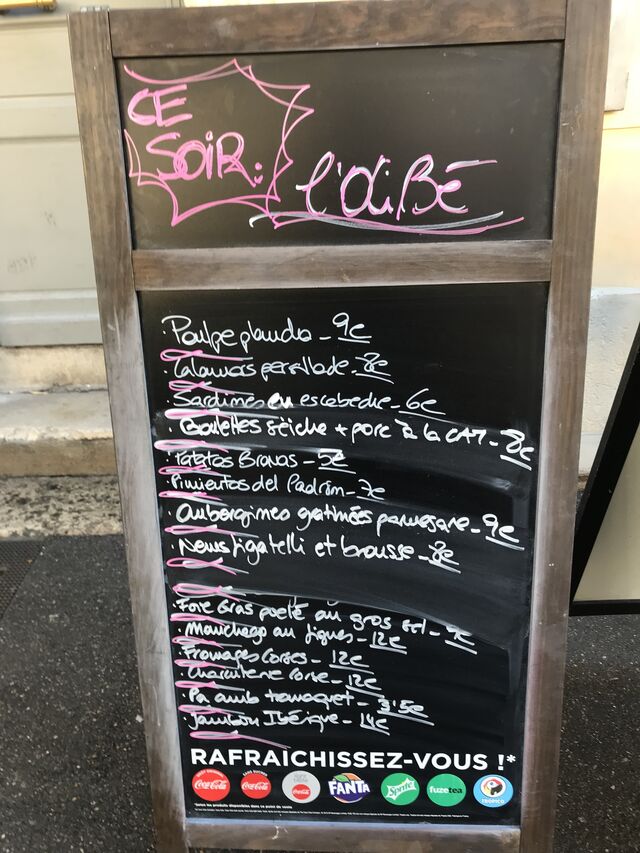 CE
SOIR:
l'OliBé
·Poulpe plancha - 9€
·Calamars persillade - 8€
·Sardines en escabeche - 6€
·Boulettes seiche + porc à la CAT - 8€
·Patatas Bravas - 5€
·Pimientos del Padrón - 7€
·Aubergines gratinées parmesane - 9€
·Nems figatelli et brousse - 8€
·Foie Gras poelé au gros sel -
·Manchego au figues - 12€
·Fromages Corses - 12€
·Charcuterie Corse - 12€
·Pa amb tomaquet - 3'5€
·Jambon Ibérique - 14€
RAFRAICHISSEZ-VOUS !*
Coca-Cola Coca-Cola Coca-Cola FANTA Sprite fuzetea